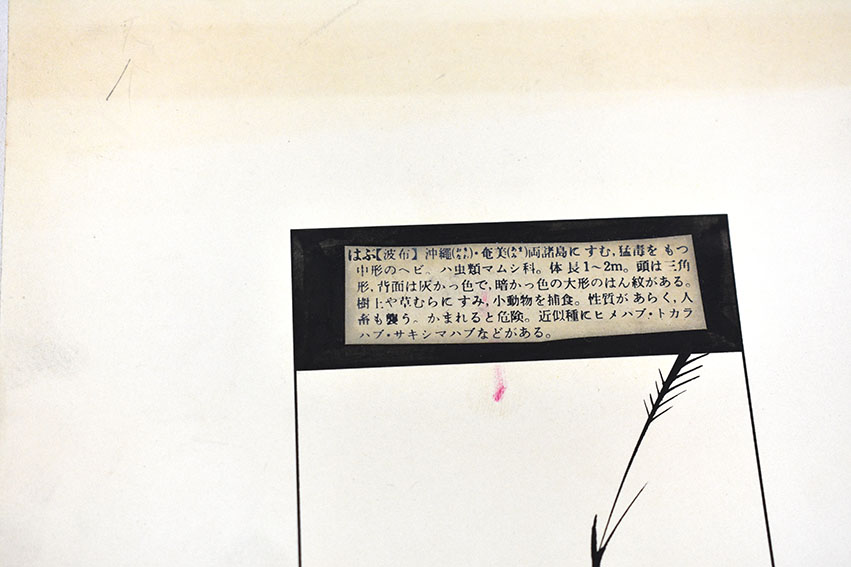 はぶ【波布】 沖縄(おきなわ)・奄美(あまみ)両諸島にすむ,猛毒をもつ
中形のヘビ。ハ虫類マムシ科。体長1～2m。頭は三角
形,背面は灰かっ色で,暗かっ色の大形のはん紋がある。
樹上や草むらにすみ,小動物を捕食。性質があらく,人
畜も襲う。かまれると危険。近似種にヒメハブ・トカラ
ハブ・サキシマハブなどがある。